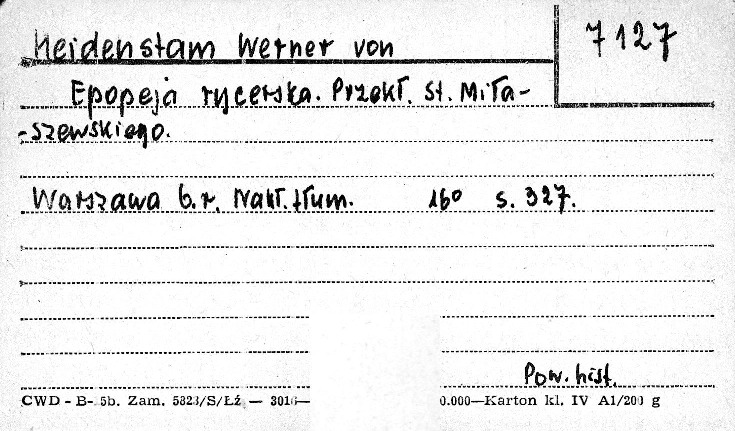 Heidenstam Werner von
7127
Epopeja rycerska. Przekł. St. Miła-
-szewskiego.
Warszawa b.r. Nakł. tłum. 16° s. 327.
Pow. hist.
CWD - B- 5b. Zam. 5823/S/Łź — 3016— 0.000—Karton kl. IV A1/200 g